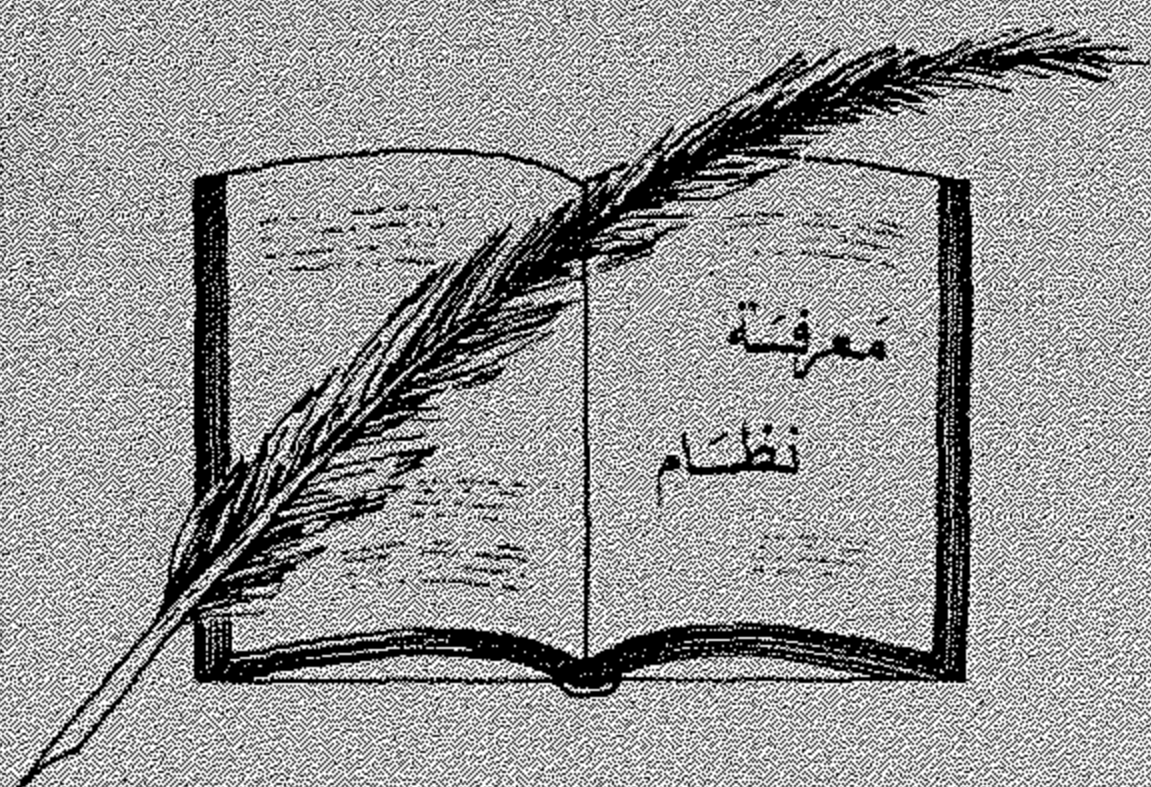 مَعرفَة
نظَام